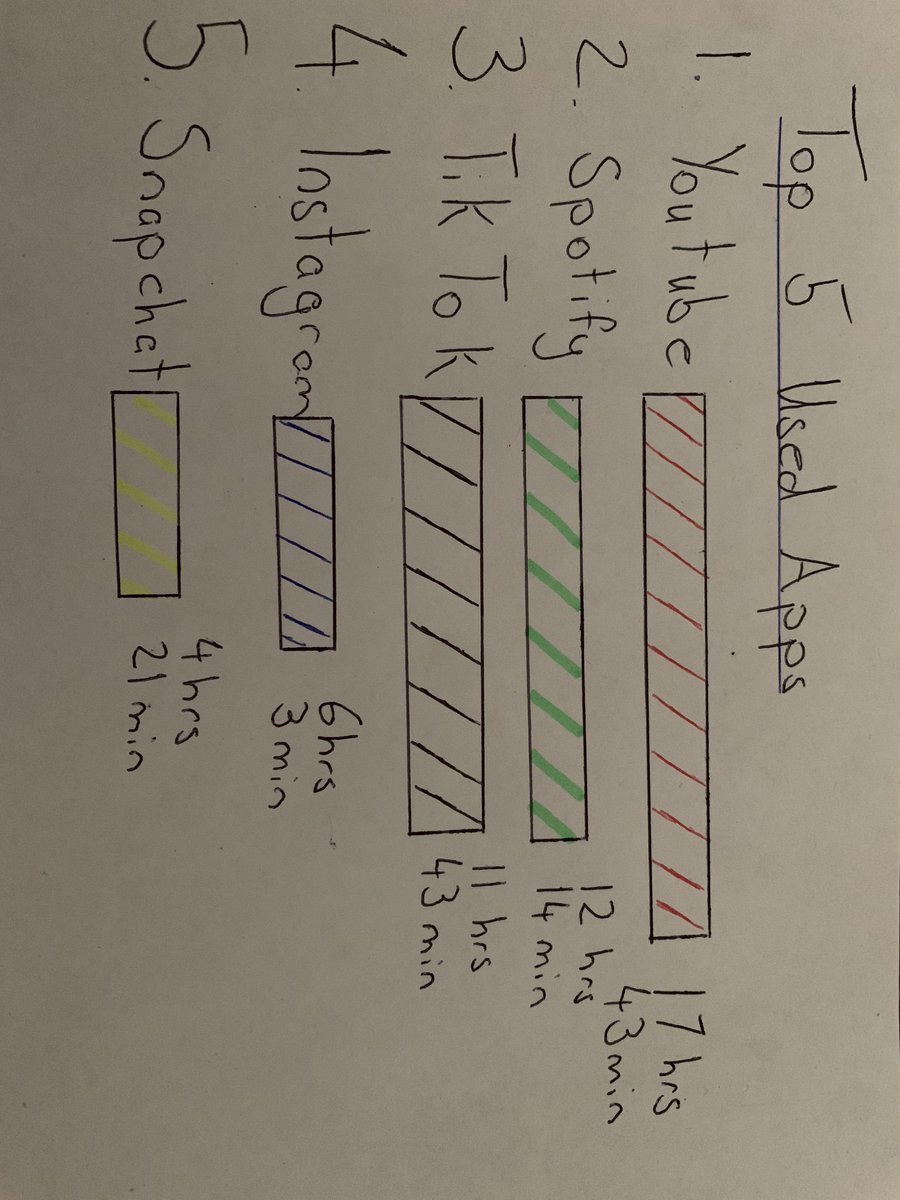 Top 5 Used Apps
1. Youtube
17 hrs
43 min
2. Spotify
12 hrs
14 min
3. Tik Tok
11 hrs
43 min
4. Instagram
6 hrs
3 min
5. Snapchat
4 hrs
21 min